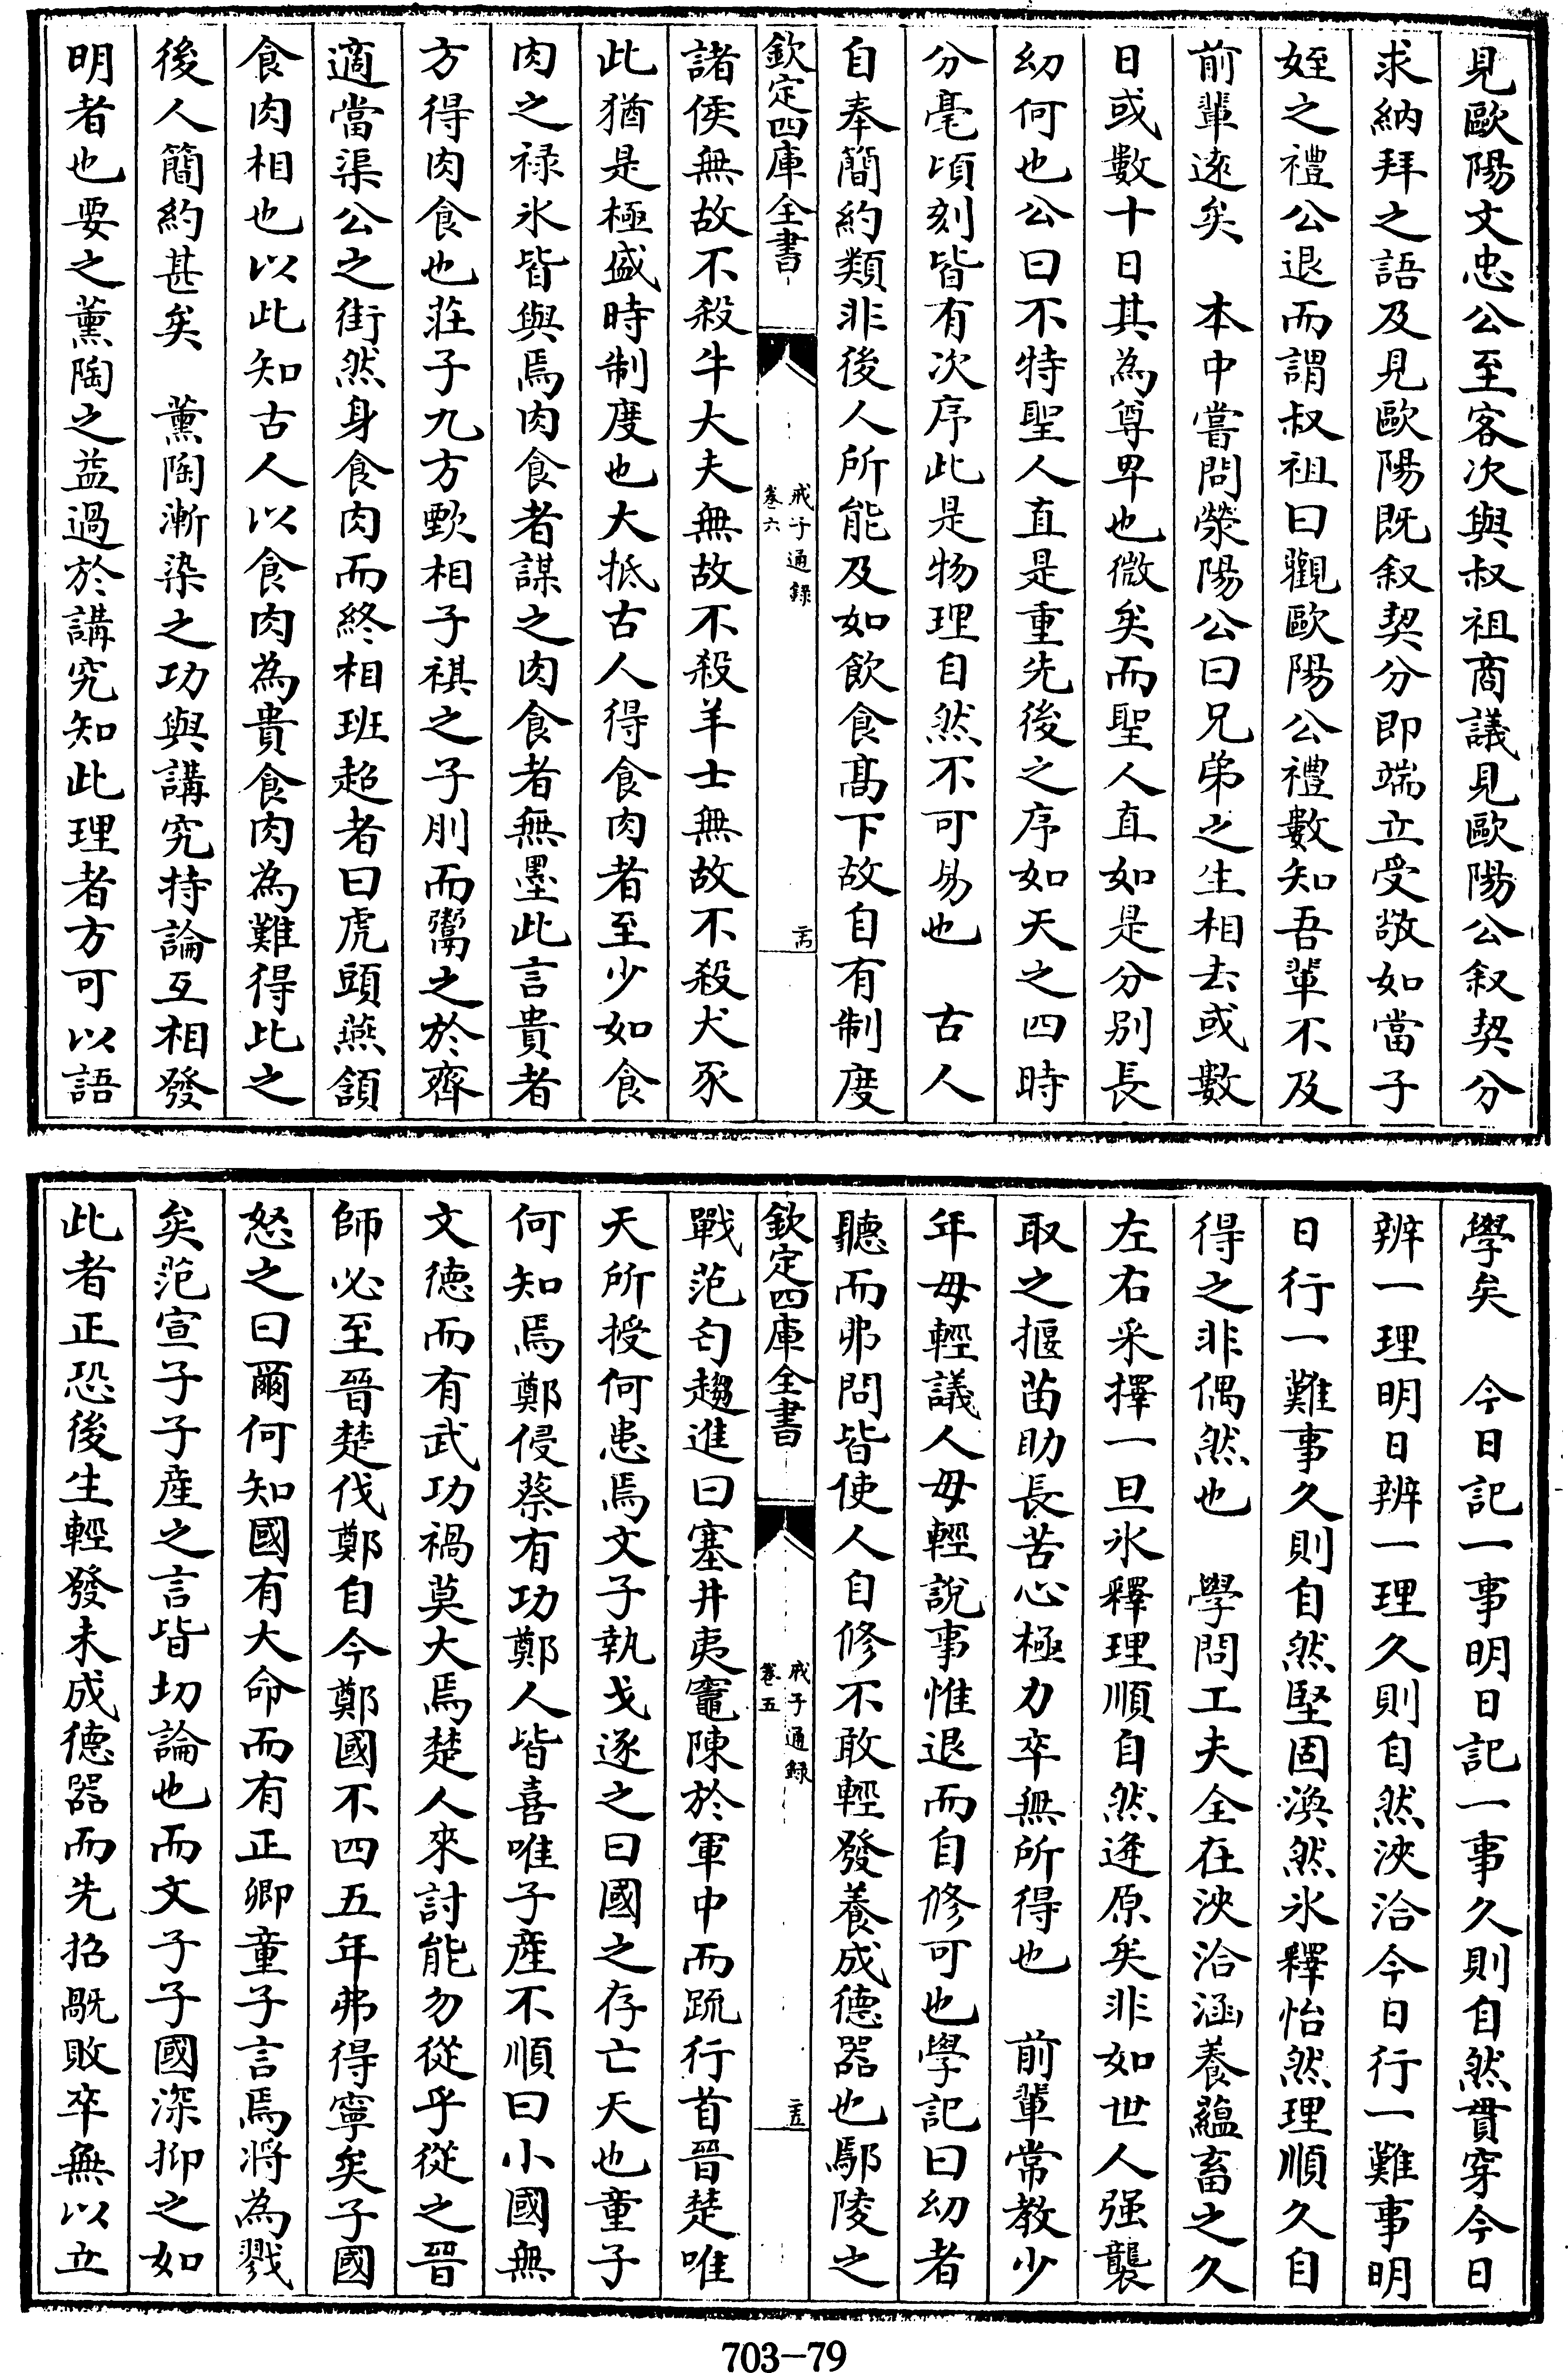 見歐陽文忠公至客次與叔祖商議見歐陽公叙契分
求納拜之語及見歐陽既叙契分即端立受敬如當子
姪之禮公退而謂叔祖曰觀歐陽公禮數知吾輩不及
前輩逺矣　本中嘗問滎陽公曰兄弟之生相去或數
日或數十日其為尊卑也微矣而聖人直如是分别長
幼何也公曰不特聖人直是重先後之序如天之四時
分毫頃刻皆有次序此是物理自然不可易也　古人
自奉簡約類非後人所能及如飲食髙下故自有制度
欽定四庫全書
戒子通録
卷六
諸侯無故不殺牛大夫無故不殺羊士無故不殺犬豕
此猶是極盛時制度也大抵古人得食肉者至少如食
肉之禄氷皆與焉肉食者謀之肉食者無墨此言貴者
方得肉食也莊子九方歅相子祺之子刖而鬻之於齊
適當渠公之街然身食肉而終相班超者曰虎頭燕頷
食肉相也以此知古人以食肉為貴食肉為難得比之
後人簡約甚矣　薰陶漸染之功與講究持論互相發
明者也要之薰陶之益過於講究知此理者方可以語
學矣　今日記一事明日記一事久則自然貫穿今日
辨一理明日辨一理久則自然浹洽今日行一難事明
日行一難事久則自然堅固渙然氷釋怡然理順久自
得之非偶然也　學問工夫全在浹洽涵養蘊畜之久
左右采擇一旦氷釋理順自然逄原矣非如世人强襲
取之揠苗助長苦心極力卒無所得也　前輩常教少
年毋輕議人毋輕説事惟退而自修可也學記曰幼者
聽而弗問皆使人自修不敢輕發養成德器也鄢陵之
欽定四庫全書
戒子通録
卷五
戰范匄趨進曰塞井夷竈陳於軍中而疏行首晉楚唯
天所授何患焉文子執戈逐之曰國之存亡天也童子
何知焉鄭侵蔡有功鄭人皆喜唯子産不順曰小國無
文德而有武功禍莫大焉楚人來討能勿從乎從之晉
師必至晉楚伐鄭自今鄭國不四五年弗得寧矣子國
怒之曰爾何知國有大命而有正卿童子言焉將為戮
矣范宣子子産之言皆切論也而文子子國深抑之如
此者正恐後生輕發未成德器而先招戫敗卒無以立
703-79